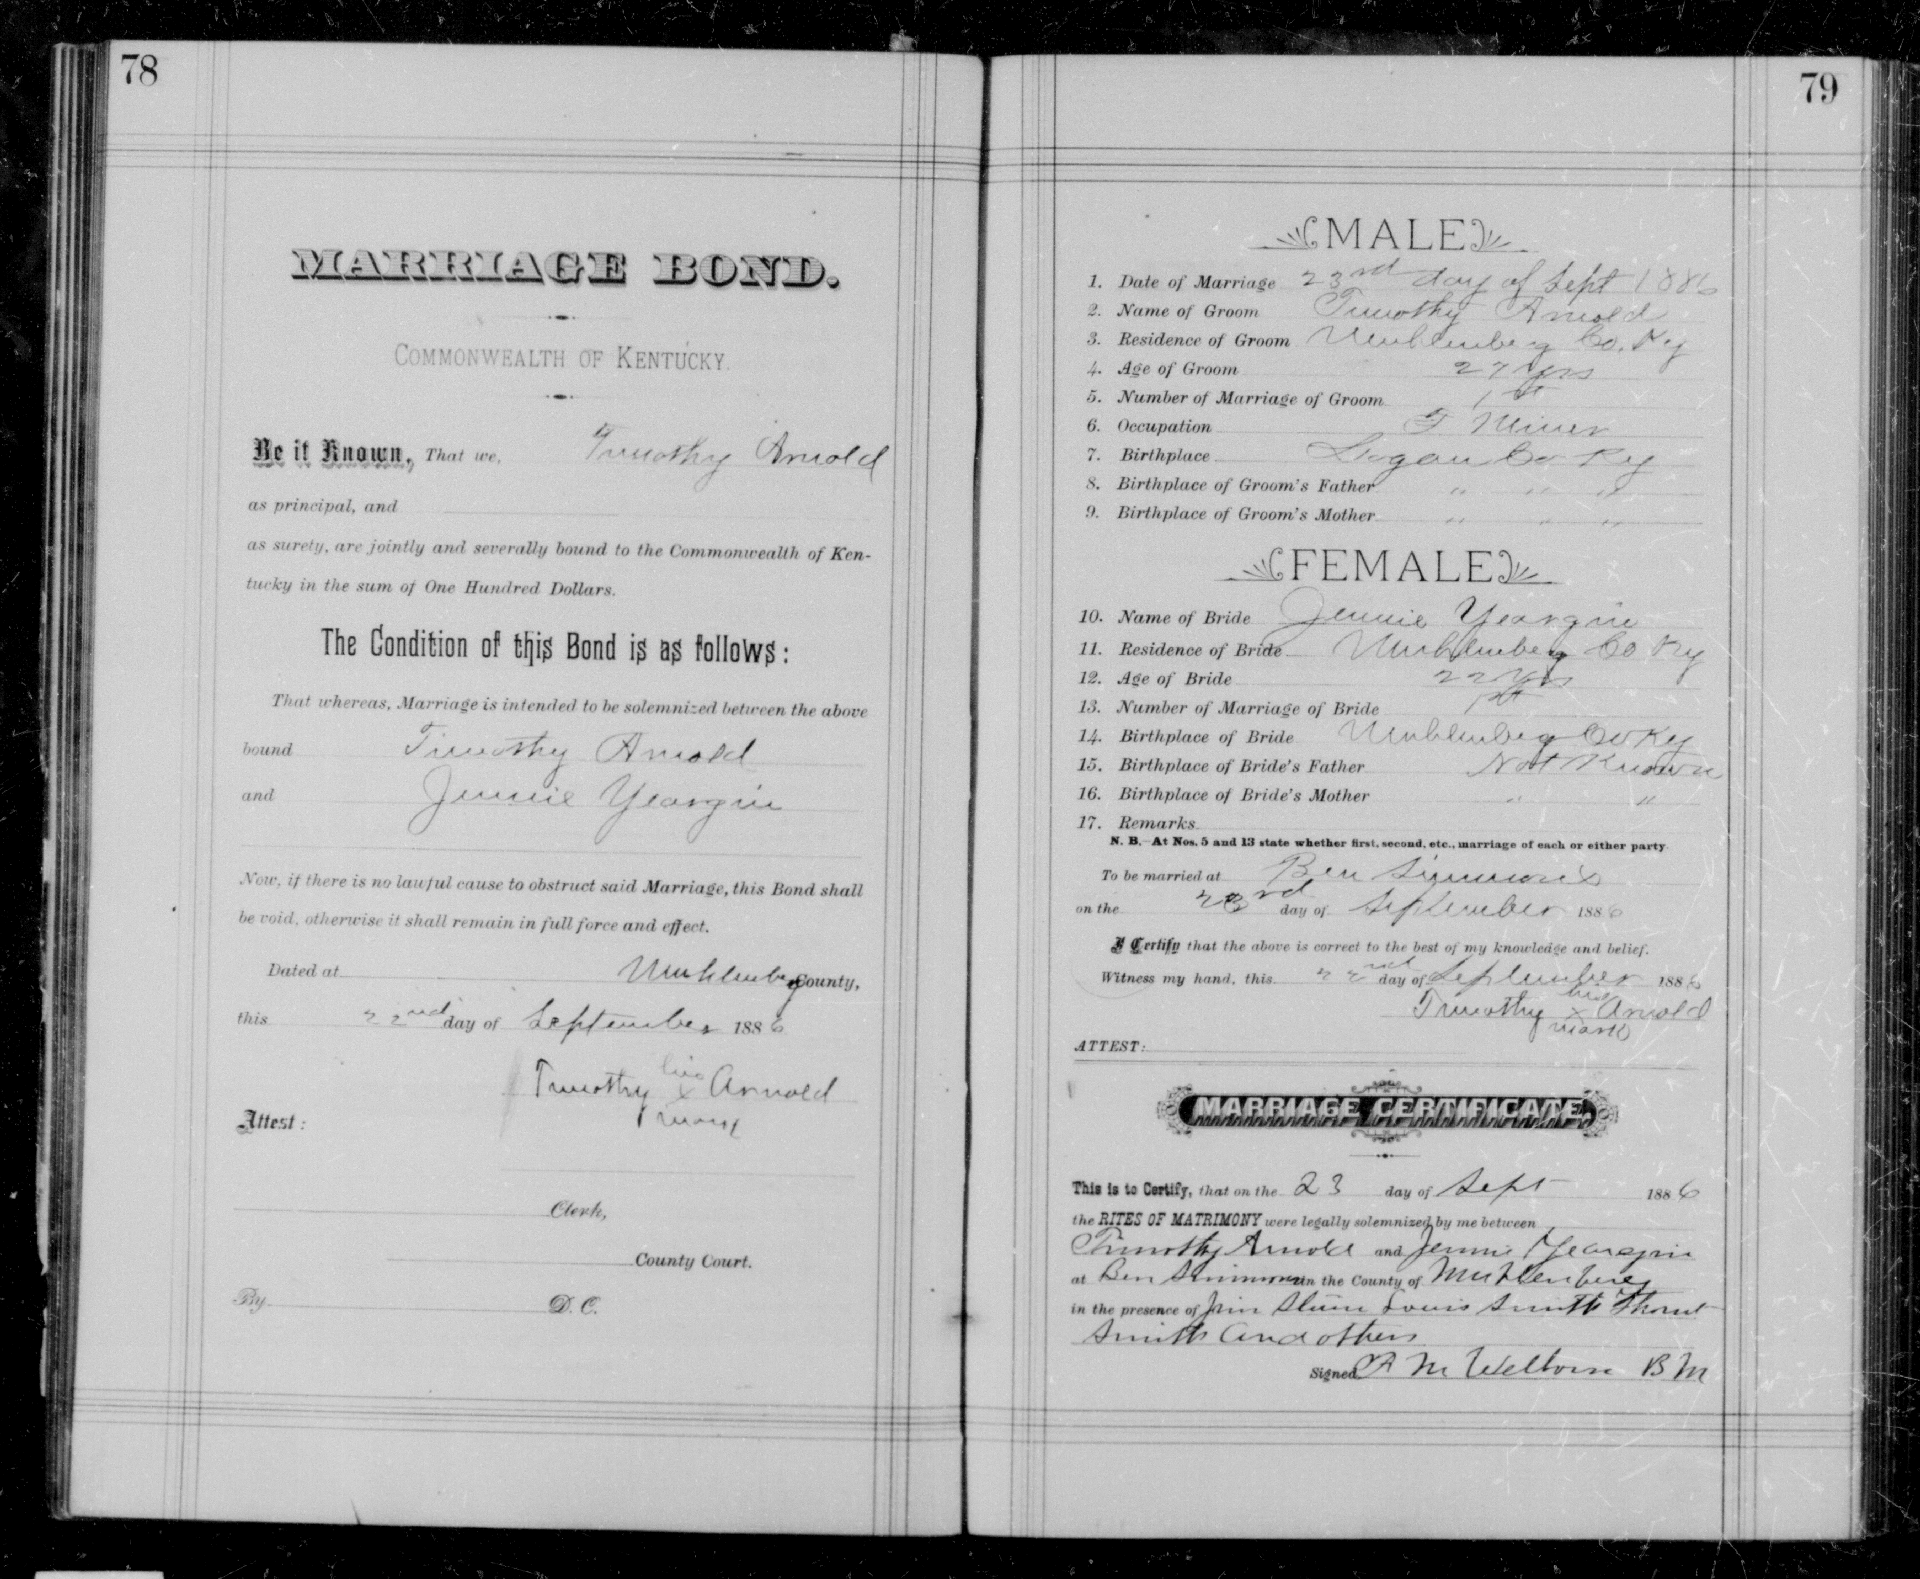 78
MARRIAGE BOND.
COMMONWEALTH OF KENTUCKY.
Be it Known, That we, Timothy Arnold
as principal, and
as surety, are jointly and severally bound to the Commonwealth of Ken-
tucky in the sum of One Hundred Dollars.
The Condition of this Bond is as follows:
That whereas, Marriage is intended to be solemnized between the above
bound Timothy Arnold
and Jennie Yeargin
Now, if there is no lawful cause to obstruct said Marriage, this Bond shall
be void, otherwise it shall remain in full force and effect.
Dated at Muhlenberg County,
this 22nd day of September 1886
Timothy his x Arnold
mark
Attest:
Clerk,
County Court.
By D. C.
79
MALE
1. Date of Marriage 23rd day of Sept 1886
2. Name of Groom Timothy Arnold
3. Residence of Groom Muhlenberg Co. Ky
4. Age of Groom 27 yrs
5. Number of Marriage of Groom 1st
6. Occupation Miner
7. Birthplace Logan Co Ky
8. Birthplace of Groom's Father " " "
9. Birthplace of Groom's Mother " " "
FEMALE
10. Name of Bride Jennie Yeargin
11. Residence of Bride Muhlenberg Co Ky
12. Age of Bride 22 Yrs
13. Number of Marriage of Bride 1st
14. Birthplace of Bride Muhlenberg Co Ky
15. Birthplace of Bride's Father Not Known
16. Birthplace of Bride's Mother " "
17. Remarks
N. B.—At Nos. 5 and 13 state whether first, second, etc., marriage of each or either party
To be married at Ben Simmons
on the 23rd day of September 1886
I Certify that the above is correct to the best of my knowledge and belief.
Witness my hand, this 22nd day of September 1886
Timothy his x Arnold
mark
ATTEST:
MARRIAGE CERTIFICATE.
This is to Certify, that on the 23 day of Sept 1886
the RITES OF MATRIMONY were legally solemnized by me between
Timothy Arnold and Jennie Yeargin
at Ben Simmons in the County of Muhlenberg
in the presence of Jim Louis Smith
Smith and others
Signed M Welborn B M